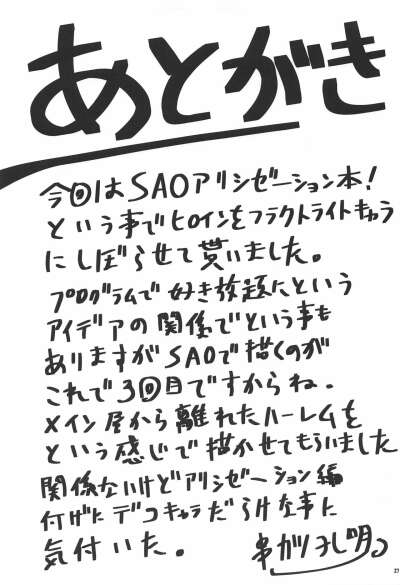 あとがき
今回はSAOアリシゼーション本!
という事でヒロインをフラクトライトキャラ
にしぼらせて貰いました。
プログラムで好き放題だという
アイデアの関係でという事も
ありますがSAOで描くのが
これで3回目ですからね.
メイン層から離れたハーレムを
という感じで描かせてもらいました
関係ないけどアリシゼーション編
デコキャラだらけな事に
気付いた。
串がりほし明。
27